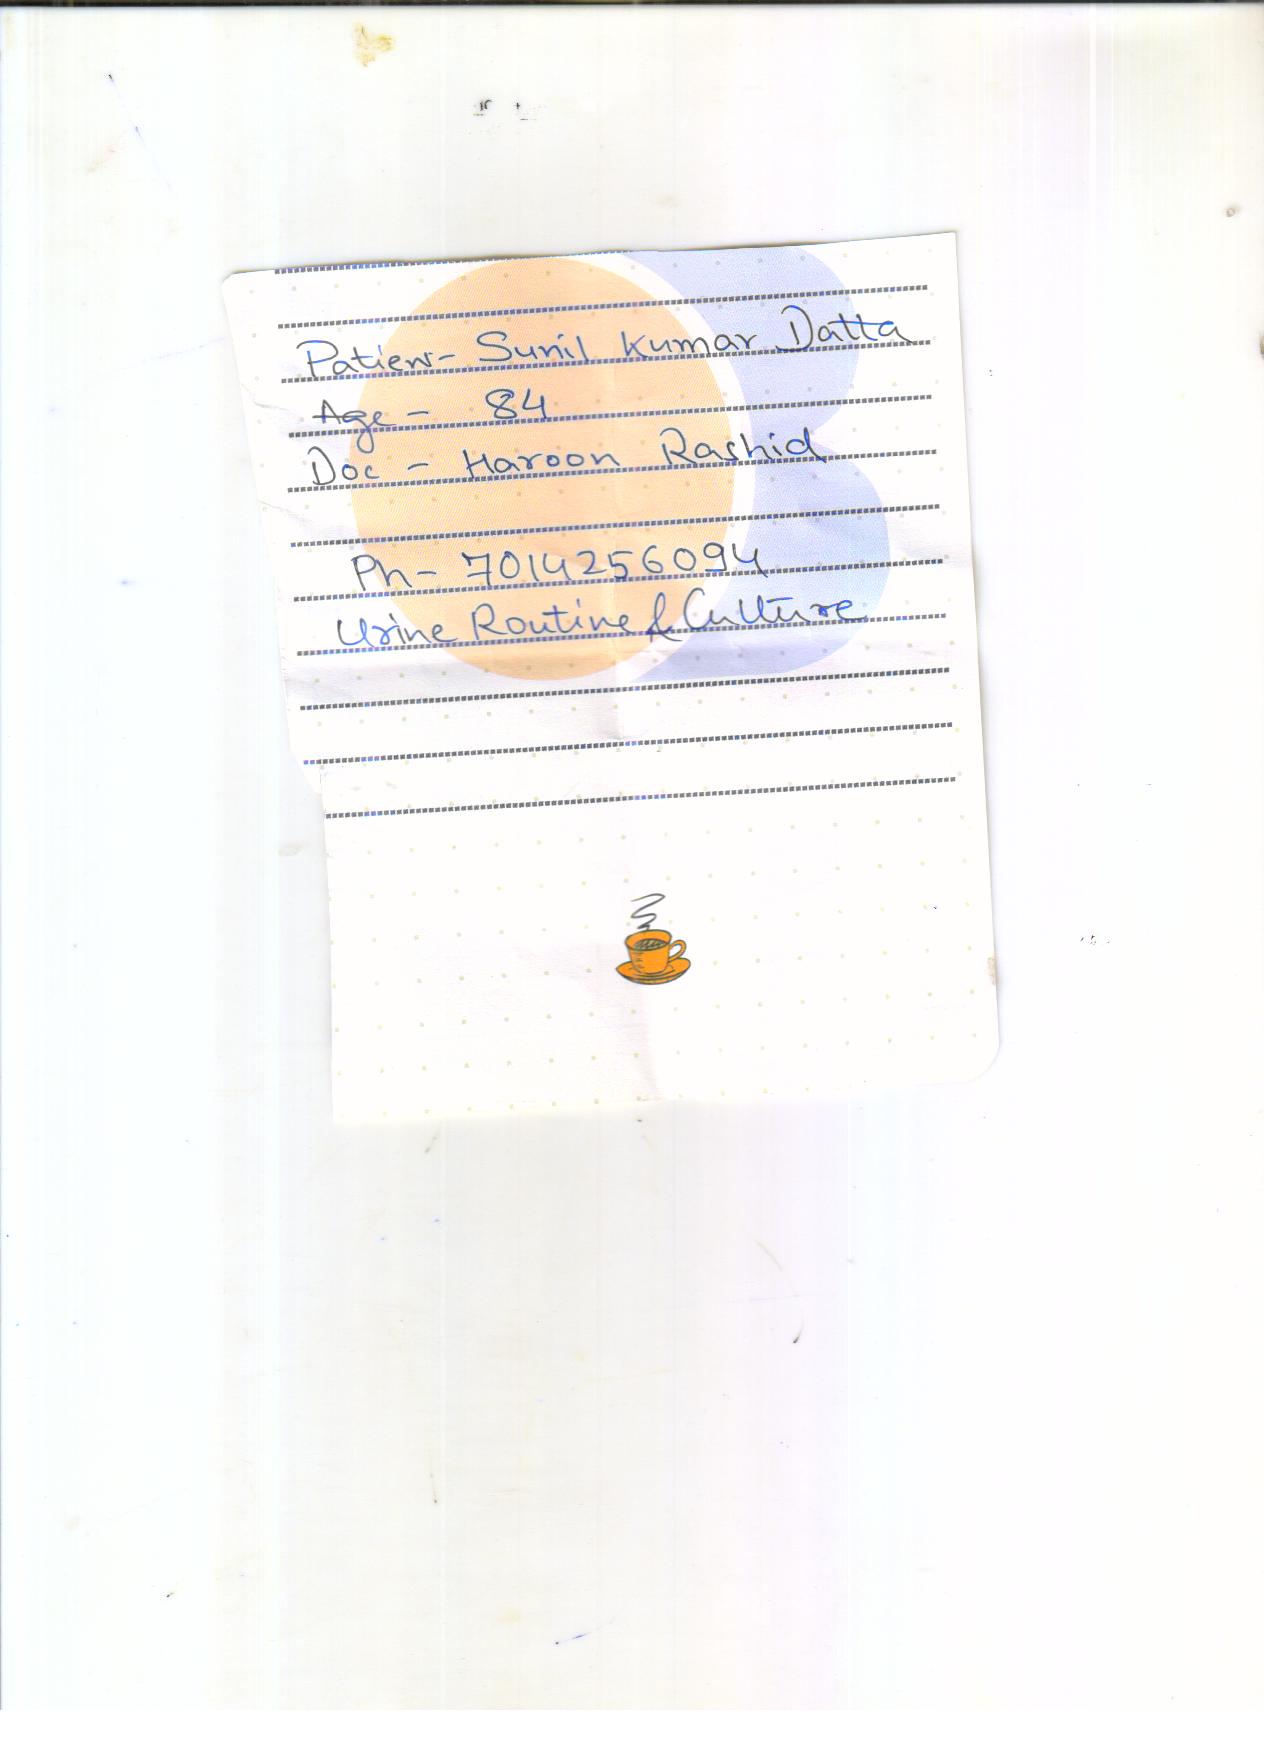 Patient - Sunil Kumar Datta
Age - 84
Doc - Haroon Rashid
Ph - 7014256094
Urine Routine & Culture